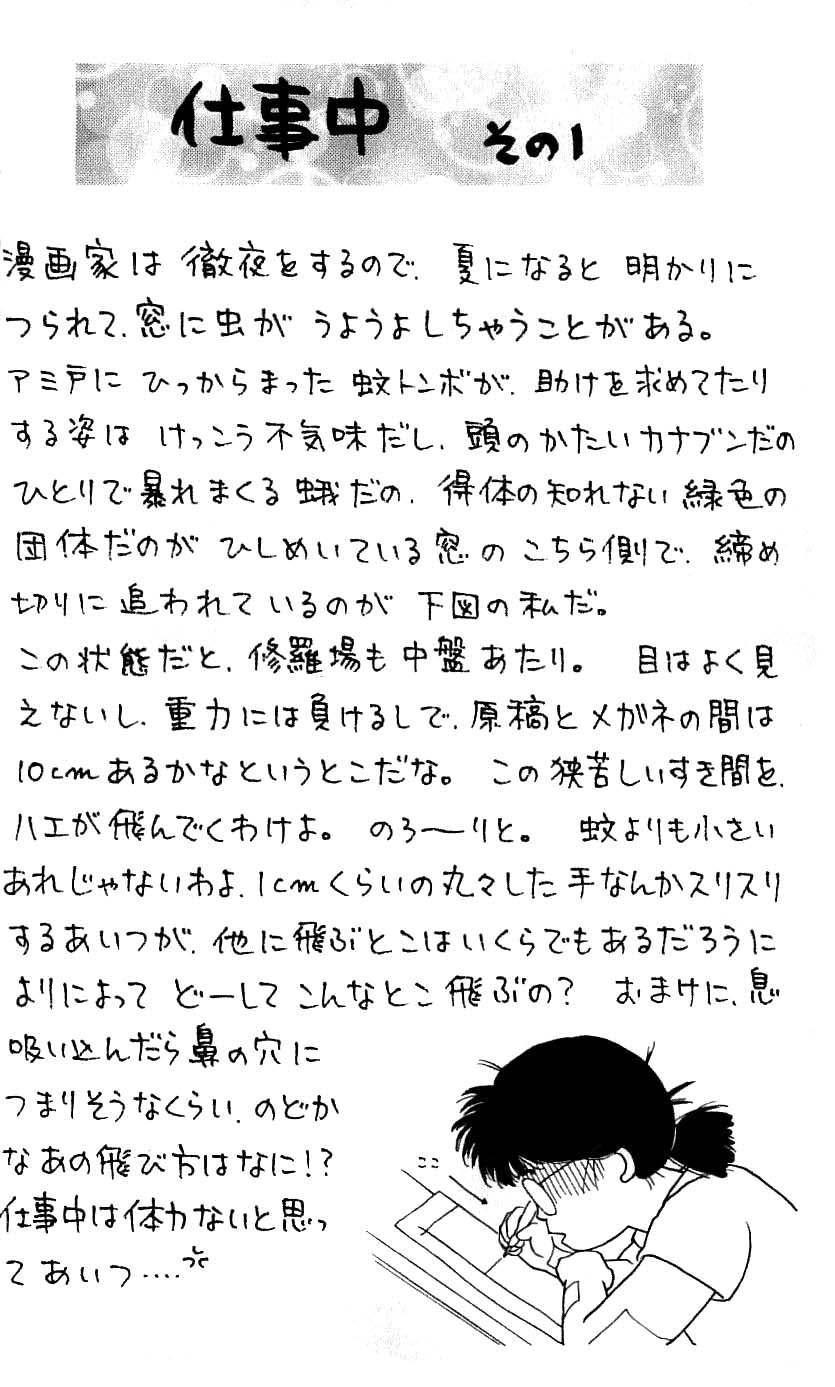 仕事中 その1
漫画家は 徹夜をするので、夏になると 明かりに
つられて、窓に虫が うようよしちゃうことがある。
アミ戸に ひっからまった 蚊トンボが、助けを求めてたり
する姿は けっこう不気味だし、頭のかたいカナブンだの
ひとりで暴れまくる蛾だの、得体の知れない緑色の
団体だのが ひしめいている窓の こちら側で、締め
切りに 追われているのが 下図の私だ。
この状態だと、修羅場も中盤あたり。 目はよく見
えないし、重力には負けるしで、原稿とメガネの間は
10cmあるかなというとこだな。 この狭苦しいすき間を、
ハエが飛んでくわけよ。 のろ〜りと。 蚊よりも小さい
あれじゃないわよ、1cmくらいの丸々した手なんかスリスリ
するあいつが、他に飛ぶとこはいくらでもあるだろうに
よりによって どーして こんなとこ飛ぶの? おまけに、息
吸い込んだら鼻の穴に
つまりそうなくらい、のどか
なあの飛び方はなに!?
仕事中は体力ないと思っ
てあいつ‥‥
ここ